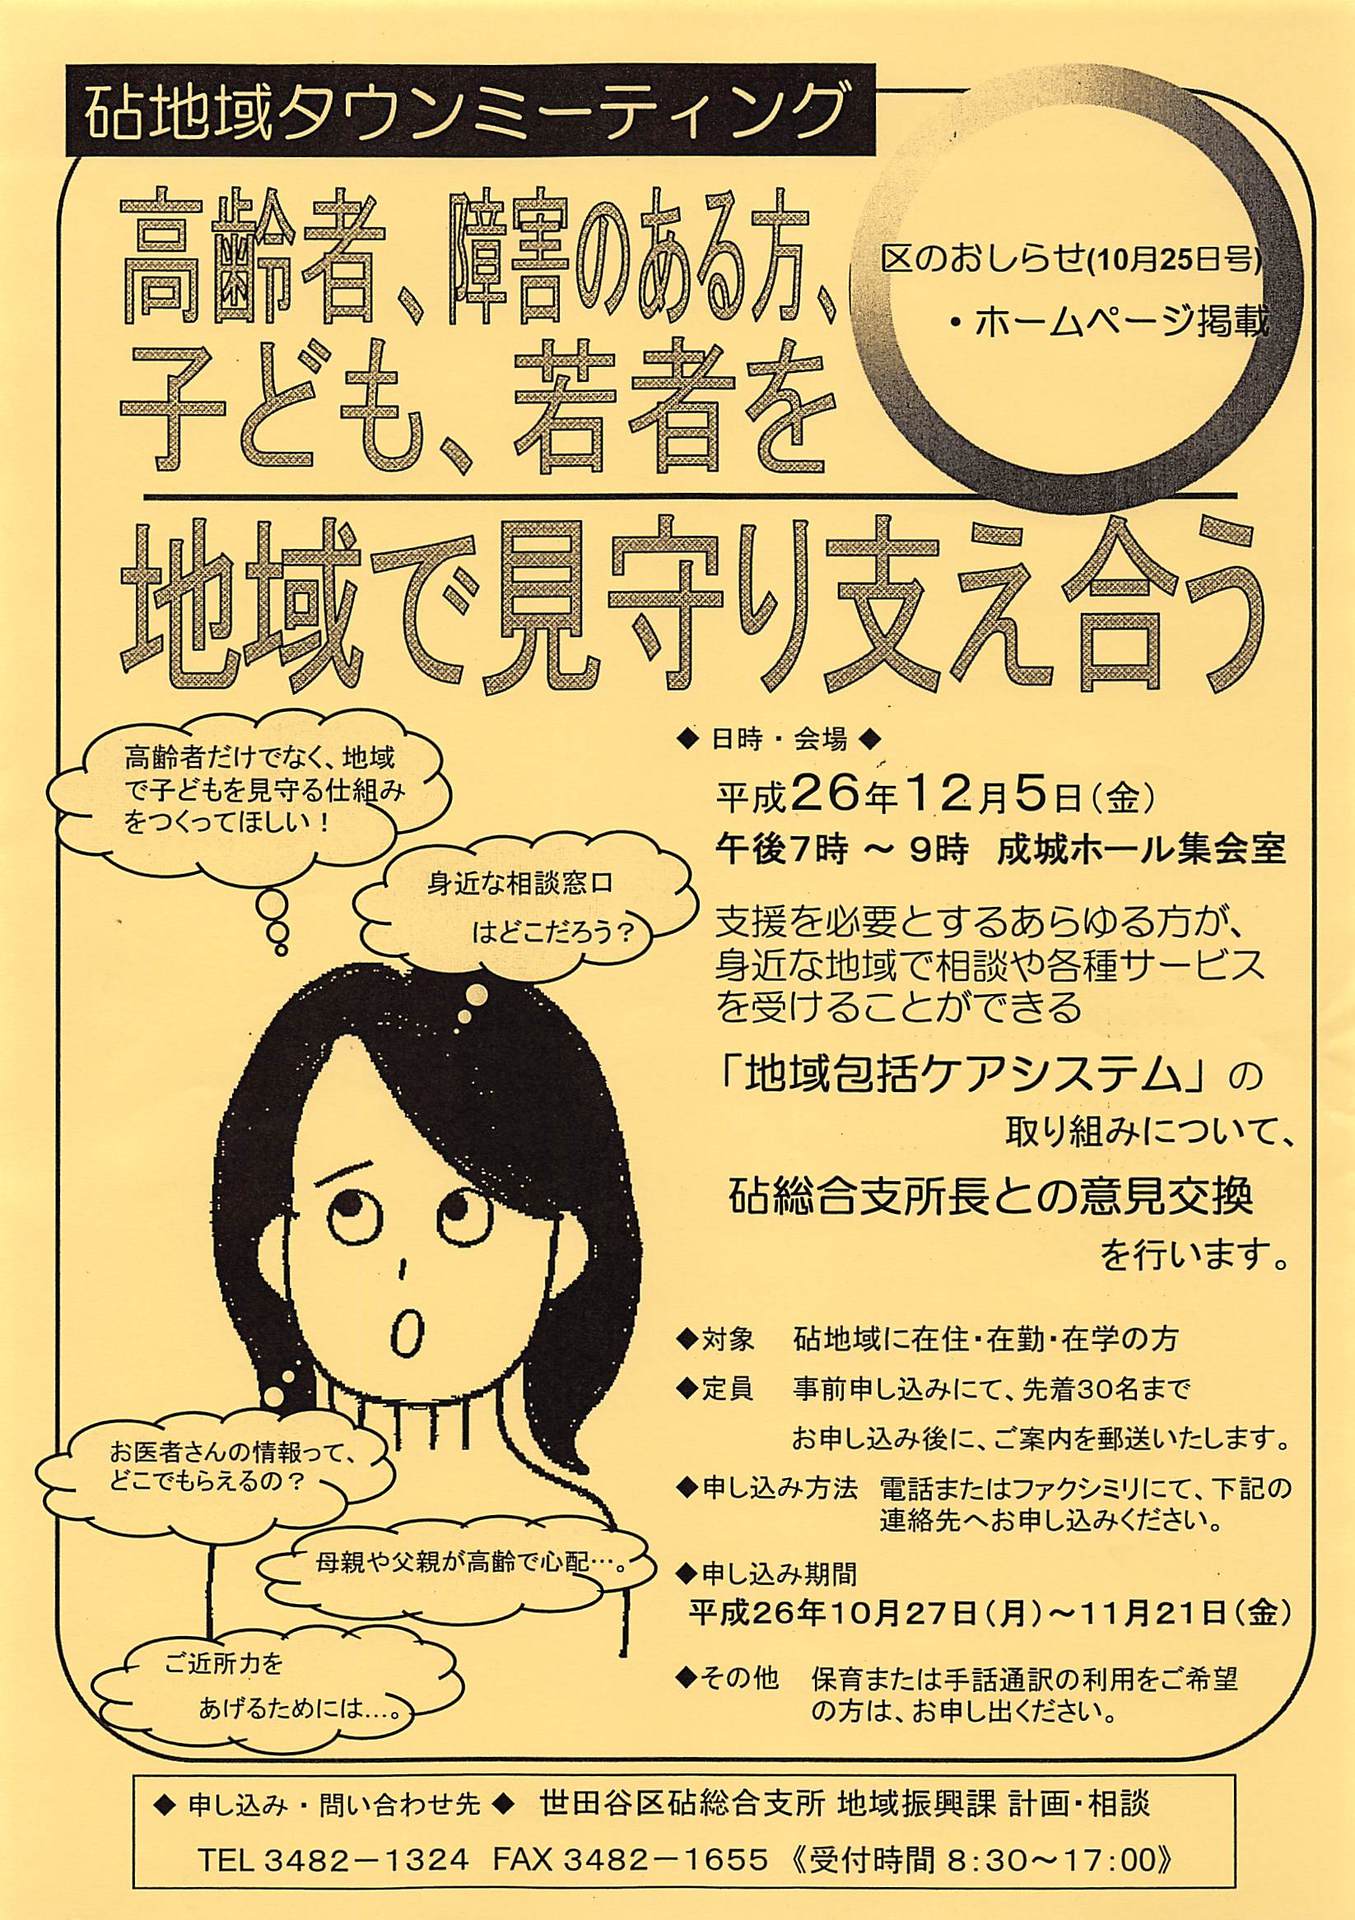 砧地域タウンミーティング
高齢者、障害のある方、
子ども、若者を
地域で見守り支え合う
区のおしらせ(10月25日号)
・ホームページ掲載
高齢者だけでなく、地域
で子どもを見守る仕組み
をつくってほしい！
身近な相談窓口
はどこだろう？
お医者さんの情報って、
どこでもらえるの？
母親や父親が高齢で心配…。
ご近所力を
あげるためには…。
◆ 日時・会場 ◆
平成26年12月5日(金)
午後7時 ～ 9時 成城ホール集会室
支援を必要とするあらゆる方が、
身近な地域で相談や各種サービス
を受けることができる
「地域包括ケアシステム」の
取り組みについて、
砧総合支所長との意見交換
を行います。
◆対象 砧地域に在住・在勤・在学の方
◆定員 事前申し込みにて、先着30名まで
お申し込み後に、ご案内を郵送いたします。
◆申し込み方法 電話またはファクシミリにて、下記の
連絡先へお申し込みください。
◆申し込み期間
平成26年10月27日(月)～11月21日(金)
◆その他 保育または手話通訳の利用をご希望
の方は、お申し出ください。
◆ 申し込み・問い合わせ先 ◆ 世田谷区砧総合支所 地域振興課 計画・相談
TEL 3482－1324 FAX 3482－1655 《受付時間 8:30～17:00》